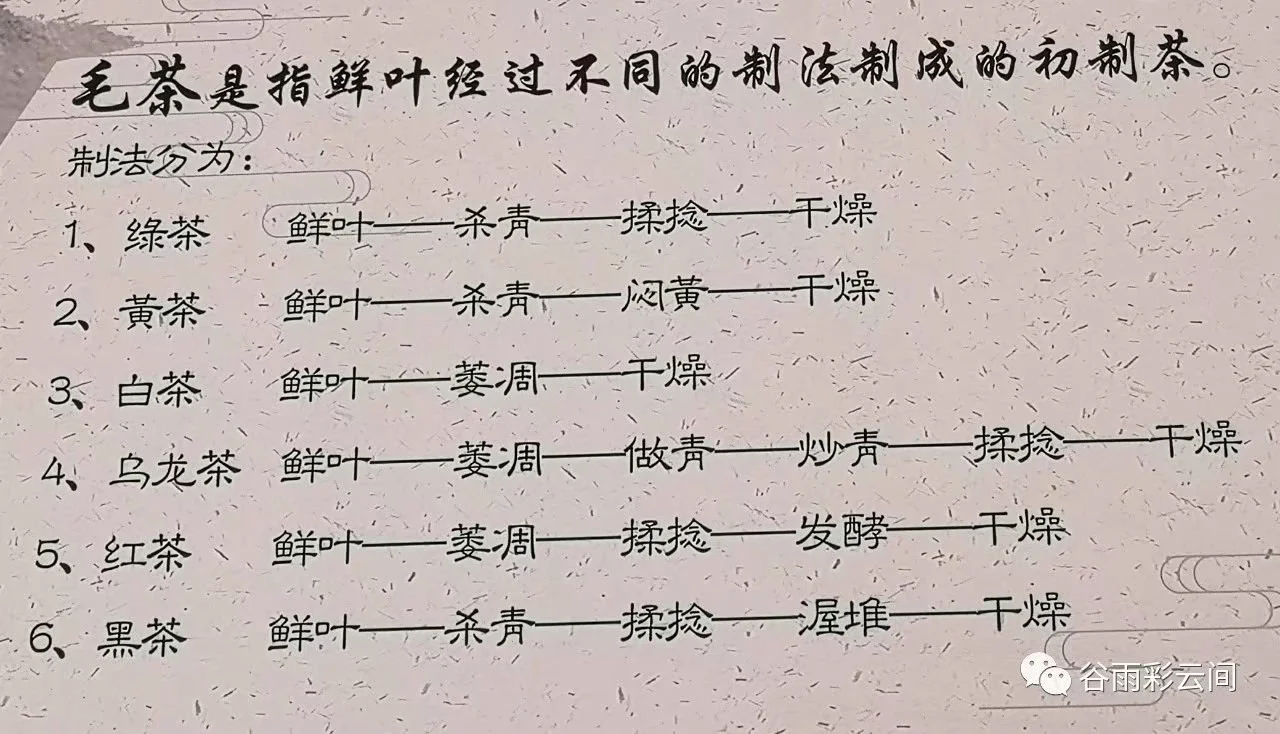 毛茶是指鲜叶经过不同的制法制成的初制茶。
制法分为：
1、绿茶 鲜叶——杀青——揉捻——干燥
2、黄茶 鲜叶——杀青——闷黄——干燥
3、白茶 鲜叶——萎凋——干燥
4、乌龙茶 鲜叶——萎凋——做青——炒青——揉捻——干燥
5、红茶 鲜叶——萎凋——揉捻——发酵——干燥
6、黑茶 鲜叶——杀青——揉捻——渥堆——干燥
谷雨彩云间